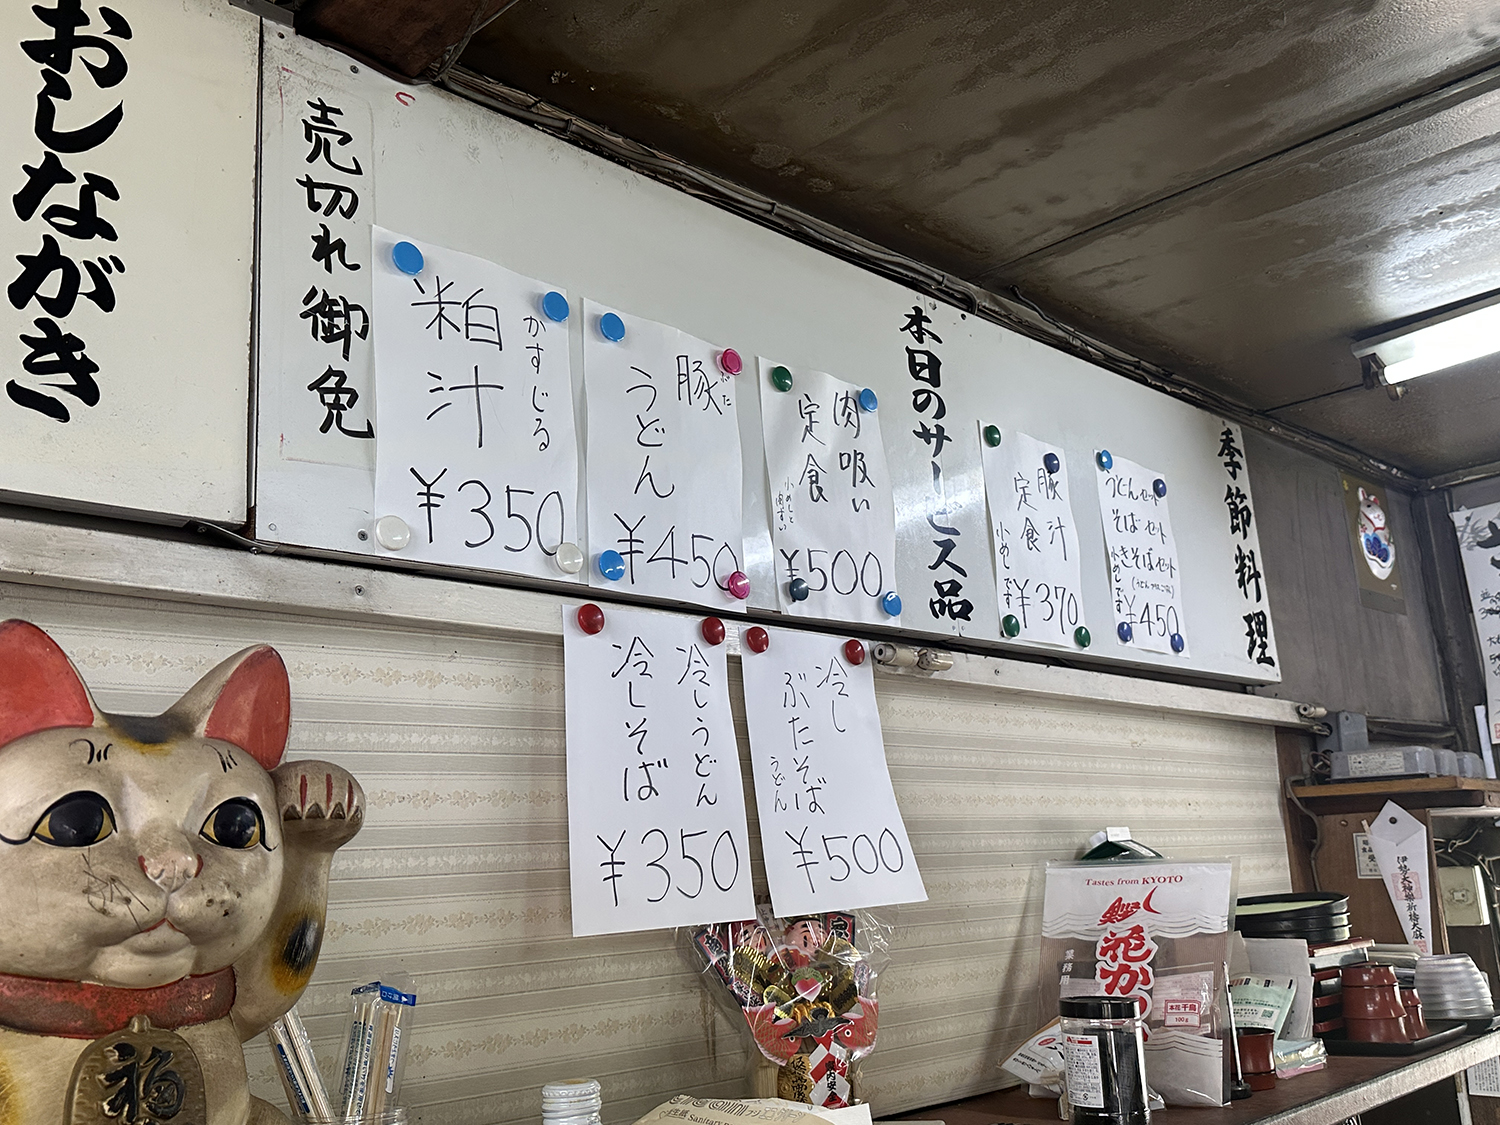 おしながき
売切れ御免
粕汁
かすじる
¥350
豚
ぶた
うどん
¥450
肉吸い
定食
小めしと
肉すい
¥500
本日のサービス品
豚汁
定食
小めしです
¥370
うどんセット
そばセット
焼きそばセット
小めしです
¥450
季節料理
冷しうどん
冷しそば
¥350
冷し
ぶたそば
うどん
¥500
福
Tastes from KYOTO
花かつ
業務用
本花千鳥
100g
伊勢大神楽祈祷大麻
家内安全
Sanitary